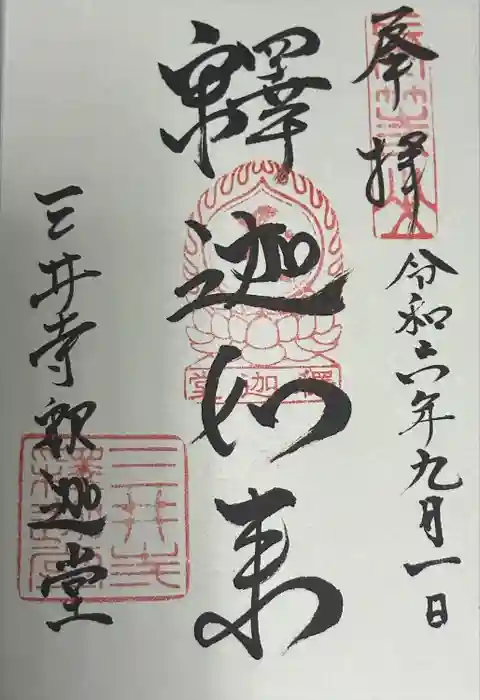 奉拝
令和六年九月一日
釋迦如来
釋迦堂
三井寺釈迦堂
三井寺